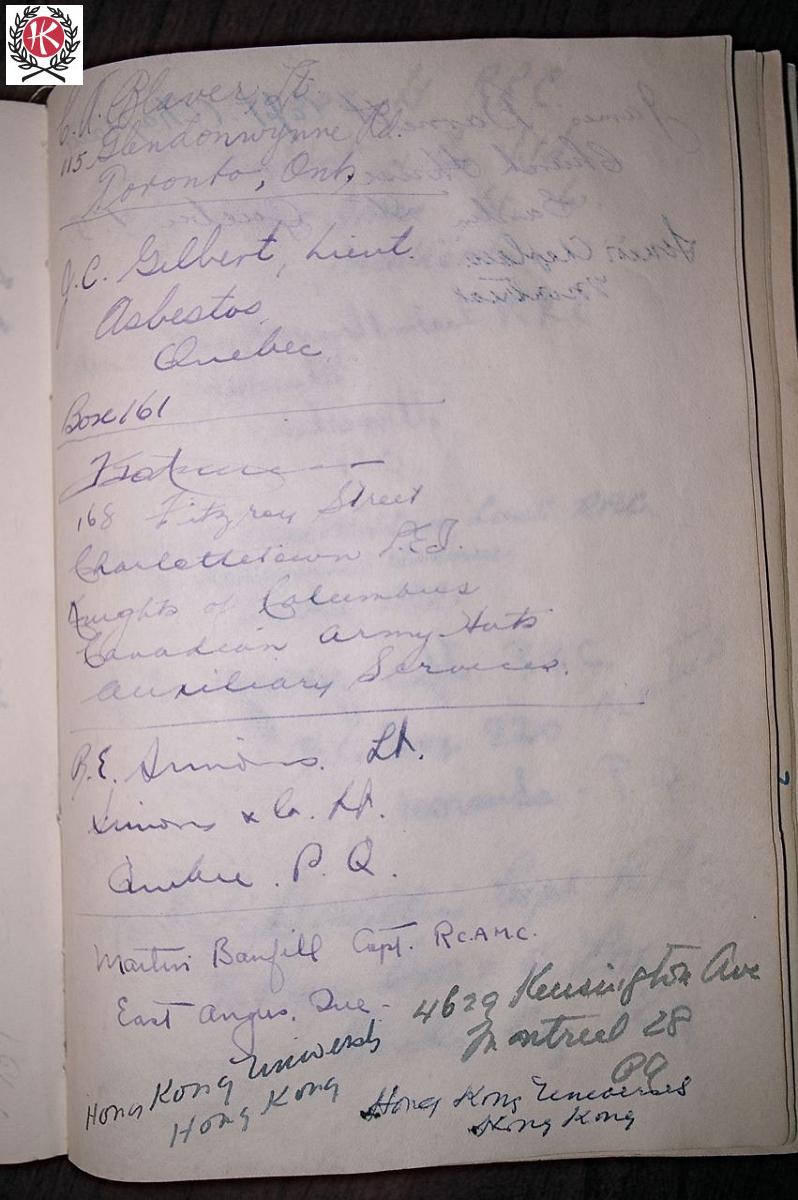 HK
C. A. Blaver, Lt.
115 Glendonwynne Rd.
Toronto, Ont.
J. C. Gilbert, Lieut.
Asbestos
Quebec
Box 161
168 Fitzroy Street
Charlottetown P.E.I.
Knights of Columbus
Canadian Army Huts
Auxiliary Services.
R.E. Simons. Lt.
Simons & Co. Lt.
Quebec. P. Q.
Martin Banfill Capt. R.C.A.M.C.
East Angus, Que -
4629 Kensington Ave
Montreal 28
PQ
Hong Kong University
Hong Kong
Hong Kong Universit
Hong Kong